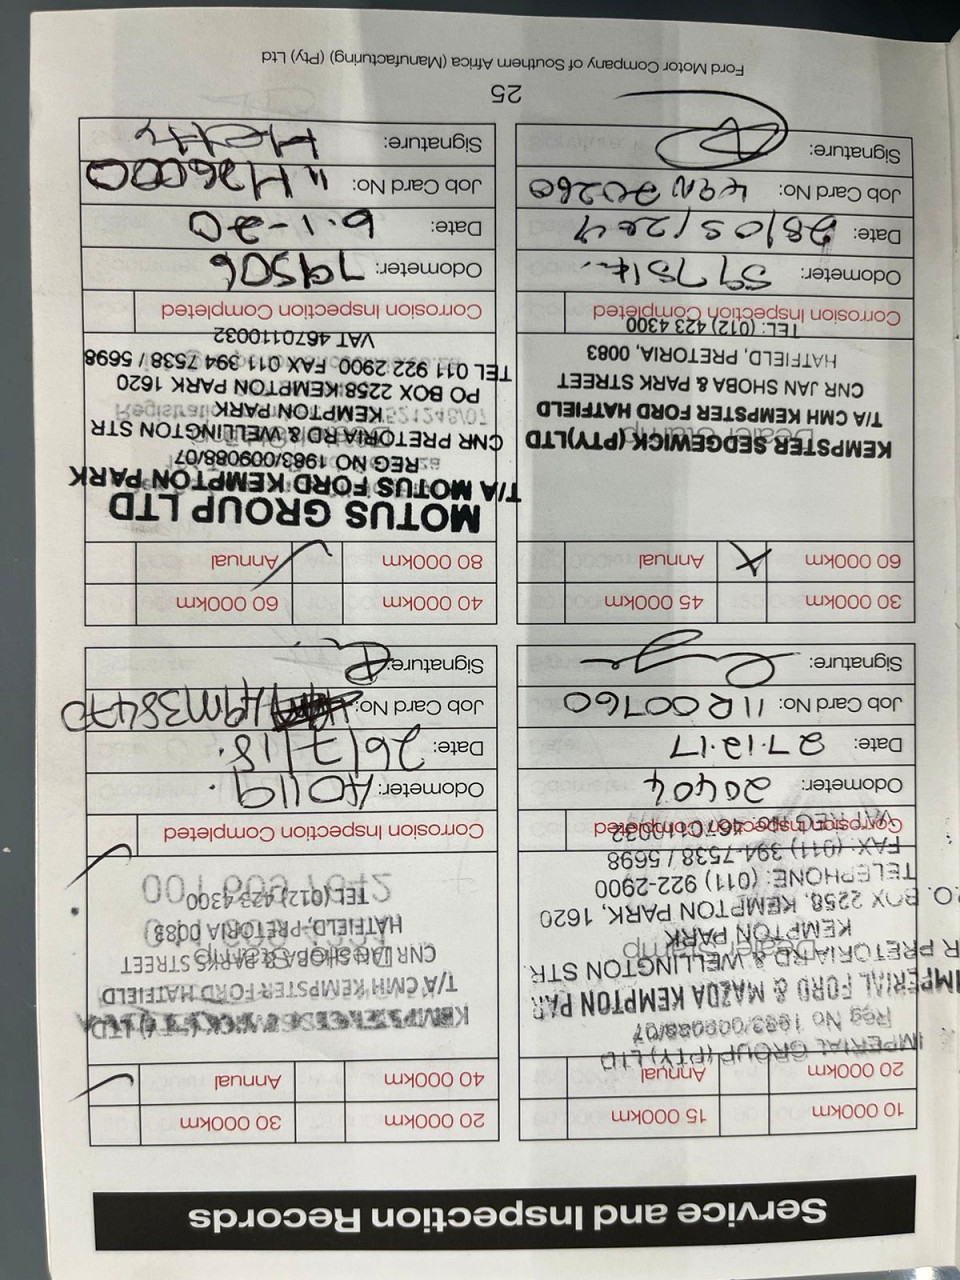 Service and Inspection Records
10 000km 15 000km
20 000km Annual
IMPERIAL GROUP (PTY) LTD
Reg No 1983/009088/07
IMPERIAL FORD & MAZDA KEMPTON PAR
R PRETORIA RD & WELLINGTON STR
KEMPTON PARK
P.O. BOX 2258, KEMPTON PARK, 1620
TELEPHONE: (011) 922-2900
FAX: (011) 394-7538 / 5698
VAT REG No. 4670110032
Corrosion Inspection Completed
Odometer: 20404
Date: 27.12.17
Job Card No: 11R00760
Signature:
20 000km 30 000km
40 000km Annual
T/A CMH KEMPSTER FORD HATFIELD
CNR JAN SHOBA & PARKS STREET
HATFIELD, PRETORIA 0083
TEL (012) 423 4300
Corrosion Inspection Completed
Odometer: 40119
Date: 26/7/18.
Job Card No: 49M38470
Signature:
30 000km 45 000km
60 000km Annual
KEMPSTER SEDGEWICK (PTY) LTD
T/A CMH KEMPSTER FORD HATFIELD
CNR JAN SHOBA & PARK STREET
HATFIELD, PRETORIA, 0083
TEL: (012) 423 4300
Corrosion Inspection Completed
Odometer:
Date:
Job Card No: 49N70260
Signature:
40 000km 60 000km
80 000km Annual
MOTUS GROUP LTD
T/A MOTUS FORD KEMPTON PARK
REG NO 1983/009088/07
CNR PRETORIA RD & WELLINGTON STR
KEMPTON PARK
PO BOX 2258 KEMPTON PARK 1620
TEL 011 922 2900 FAX 011 394 7538 / 5698
VAT 4670110032
Corrosion Inspection Completed
Odometer: 79506
Date: 6-1-20
Job Card No:
Signature:
25
Ford Motor Company of Southern Africa (Manufacturing) (Pty) Ltd